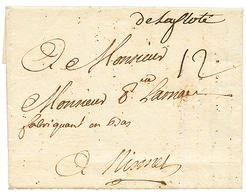 de la flote
A Monsieur
12
Monsieur
fabriquant en bas
A Nismes